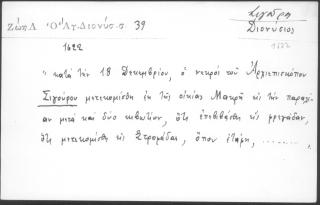 Ζώης Λ. Ὁ Ἅγ. Διονύσ. σ. 39
Σιγούρη
Διονύσιος
1622
1622
"κατά την 18 Δεκεμβρίου, ὁ νεκρός τοῦ Ἀρχιεπισκόπου
Σιγούρου μετεκομίσθη ἐκ τῆς οἰκίας Μακρῆ εἰς τήν παραλί-
αν μετά καί δύο κιβωτίων, ὅτε ἐπεβιβάσθη εἰς φρεγάδαν,
ὅτε μετεκομίσθη εἰς Στροφάδας, ὅπου ἐτάφη, ........